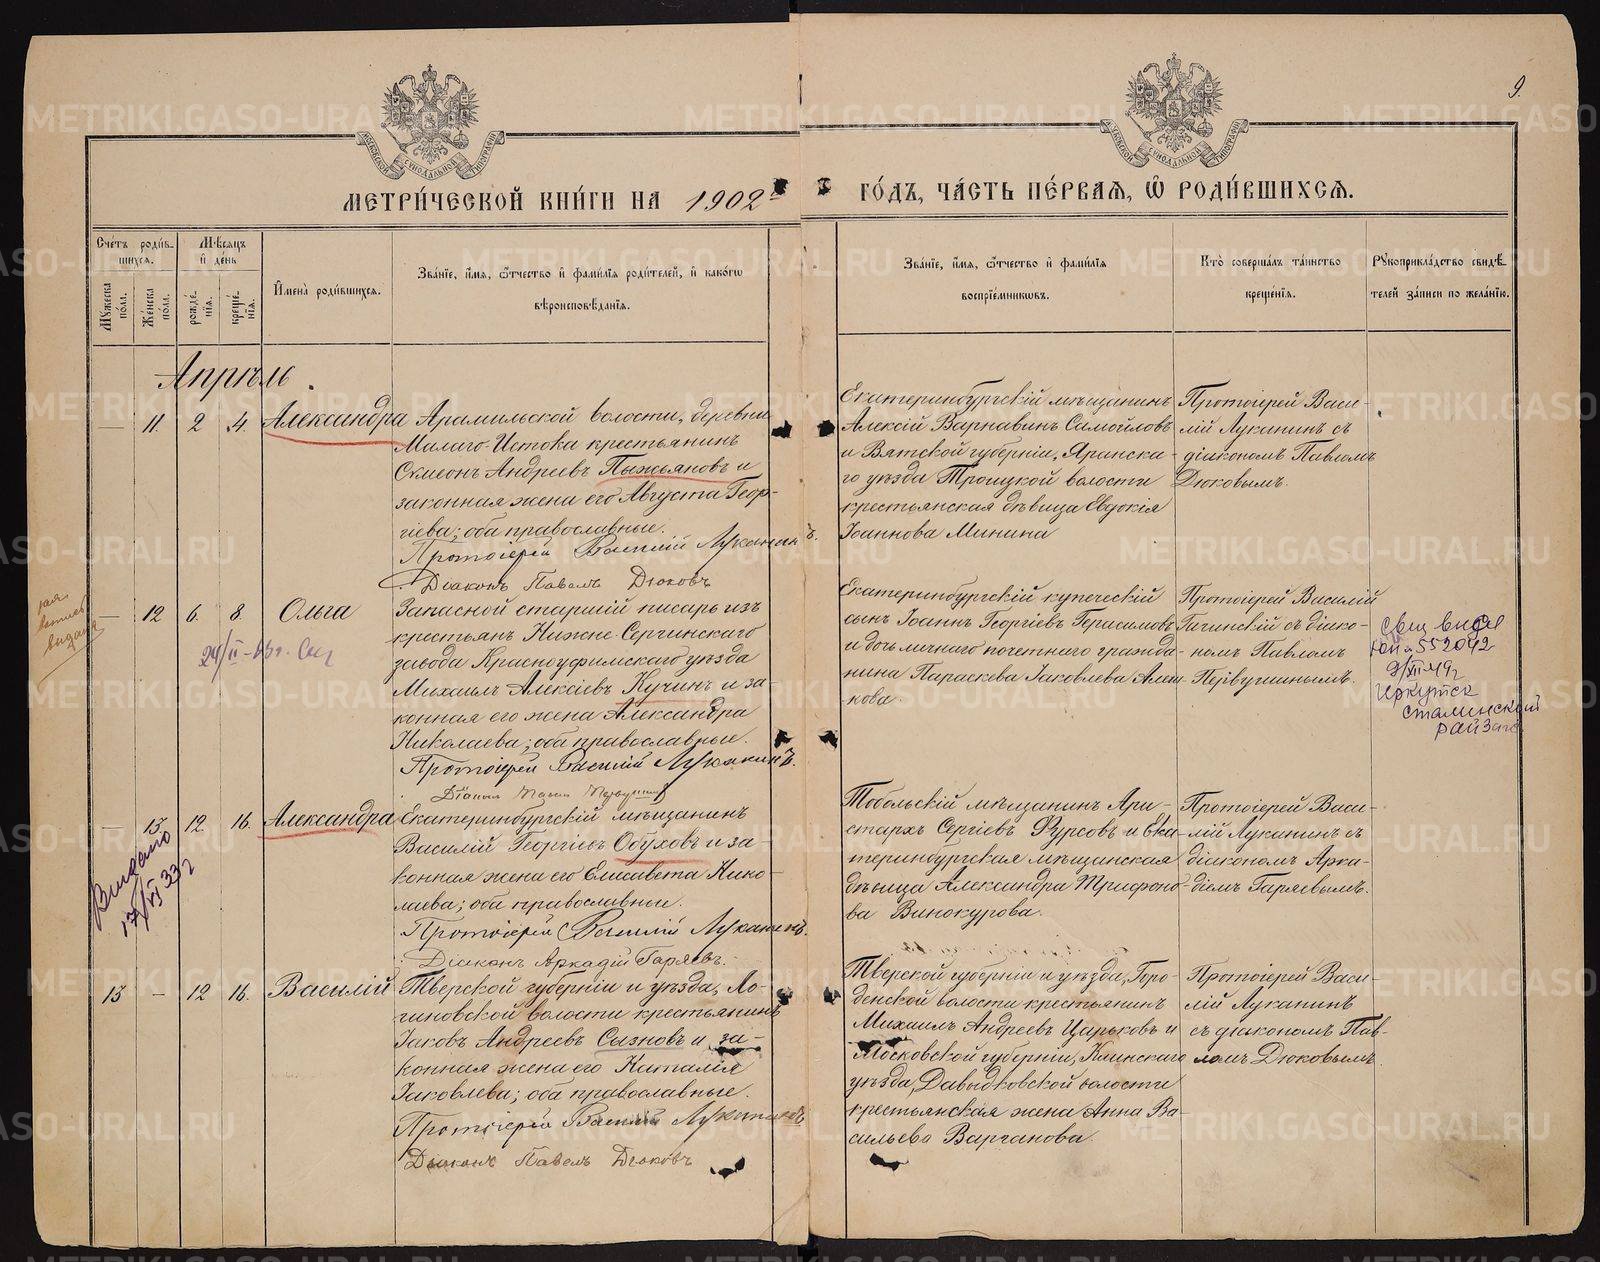 9.
МЕТРИ́ЧЕСКОЙ КНИ́ГИ НА 1902 ГО́ДЪ, ЧА́СТЬ ПЕ́РВАѦ, Ѡ РОДИ́ВШИХСѦ.
Сче́тъ роди́в-
шихсѧ.
Мѣ́сѧцъ
и де́нь
Мꙋ́жеска по́ла.
Же́нска по́ла.
рожде́-
нїѧ.
креще́-
нїѧ.
Имена̀ роди́вшихсѧ.
Зва́нїе, и́мѧ, ѻ҆́тчество и фами́лїѧ роди́телей, и како́гѡ
вѣроисповѣ́данїѧ.
Зва́нїе, и́мѧ, ѻ҆́тчество и фами́лїѧ
воспрїе́мникѡвъ.
Кто̀ соверша́лъ та́инство
креще́нїѧ.
Рꙋкоприкла́дство свидѣ́-
телей за́писи по жела́нїю.
Апрѣль.
— 11. 2 4. Александра
Арамильской волости, деревни
Малаго-Истока крестьянинъ
Симеонъ Андреевъ Пыжьяновъ и
законная жена его Августа Геор-
гіева; оба православные.
Протоіерей Василій Луканинъ.
Діаконъ Павелъ Дюковъ
Екатеринбургскій мѣщанинъ
Алексій Варнавинъ Самойловъ
и Вятской губерніи, Яранска-
го уѣзда Троицкой волости
крестьянская дѣвица Евдокія
Іоаннова Минина
Протоіерей Васи-
лій Луканинъ съ
діакономъ Павломъ
Дюковымъ.
— 12 6. 8. Ольга
Запасной старшій писарь изъ
крестьянъ Нижне-Сергинскаго
завода Красноуфимскаго уѣзда
Михаилъ Алексіевъ Кучинъ и за-
конная его жена Александра
Николаева; оба православные.
Протоіерей Василій Луканинъ.
Екатеринбургскій купеческій
сынъ Іоаннъ Георгіевъ Герасимовъ
и дочь личнаго почетнаго гражда-
нина Параскева Іаковлева
-кова.
Протоіерей Василій
съ діако-
номъ Павломъ
Первушинымъ.
552042
Иркутск
сталинский
райзагс
— 13 12. 16. Александра
Выдано
17/VI 33 г
Екатеринбургскій мѣщанинъ
Василій Георгіевъ Обуховъ и за-
конная жена его Елисавета Нико-
лаева; оба православные.
Протоіерей Василій Луканинъ.
Діаконъ Аркадій Гаряевъ.
Тобольскій мѣщанинъ Ари-
стархъ Сергіевъ Фурсовъ и Ека-
теринбургская мѣщанская
дѣвица Александра Трифоно-
ва Винокурова.
Протоіерей Васи-
лій Луканинъ съ
діакономъ Арка-
діемъ Гаряевымъ.
13 — 12 16. Василій
Тверской губерніи и уѣзда, Ло-
гиновской волости крестьянинъ
Іаковъ Андреевъ Сызновъ и за-
конная жена его Наталія
Іаковлева; оба православные.
Протоіерей Василій Луканинъ
Діаконъ Павелъ Дюковъ
Тверской губерніи и уѣзда, Горо-
денской волости крестьянинъ
Михаилъ Андреевъ Царьковъ и
Московской губерніи, Клинскаго
уѣзда, Давыдковской волости
крестьянская жена Анна Ва-
сильева Варганова.
Протоіерей Васи-
лій Луканинъ
съ діакономъ Пав-
ломъ Дюковымъ.
METRIKI.GASO-URAL.RU